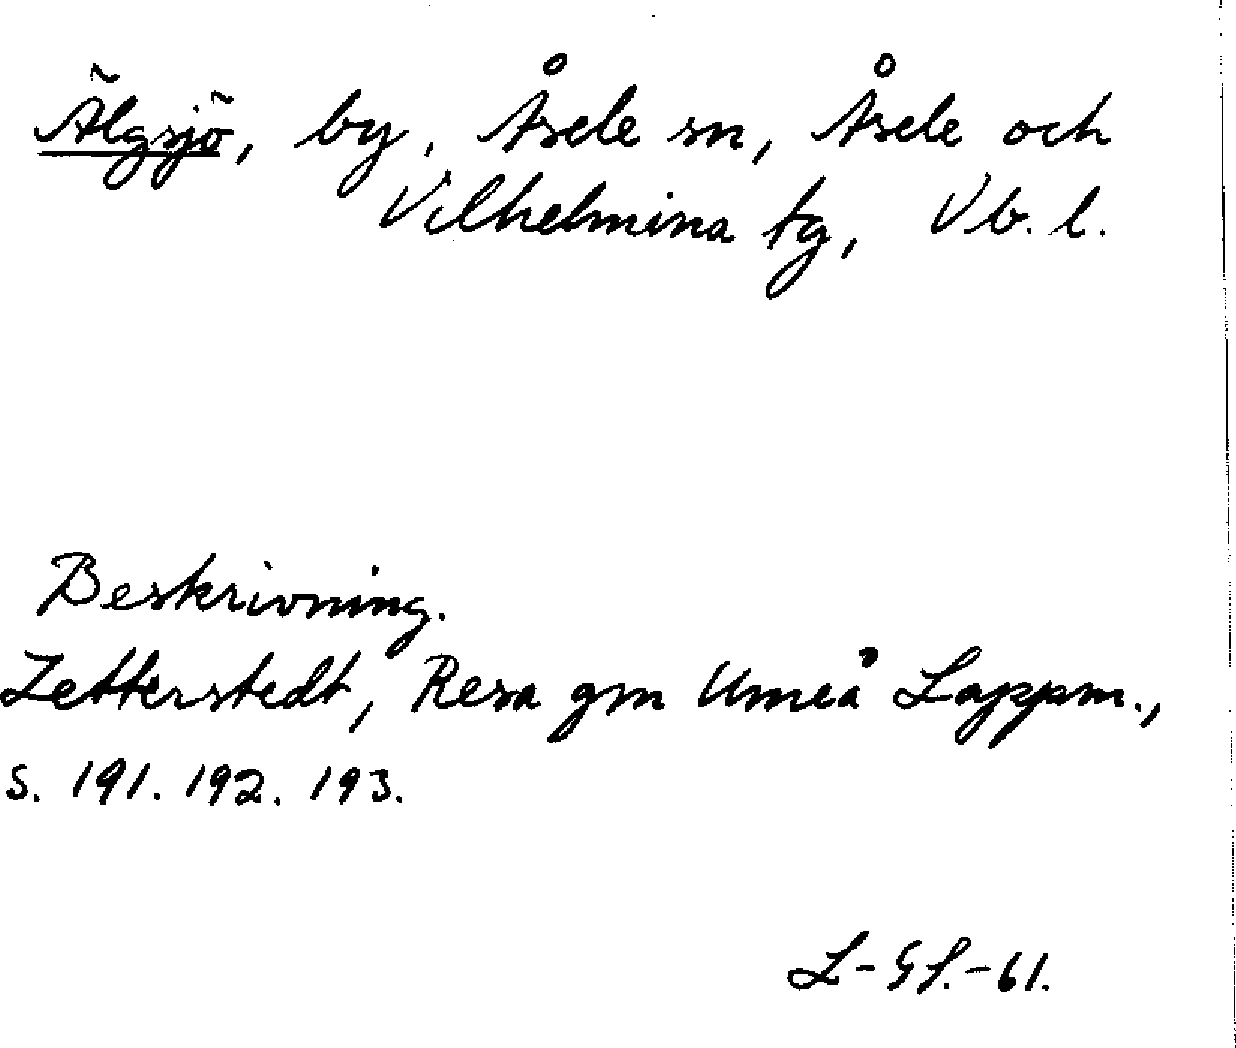 Älgsjö, by, Åsele sn, Åsele och
Vilhelmina tg, Vb. l.
Beskrivning.
Zetterstedt, Resa gm Umeå Lappm.,
s. 191. 192. 193.
L-Gl.-61.